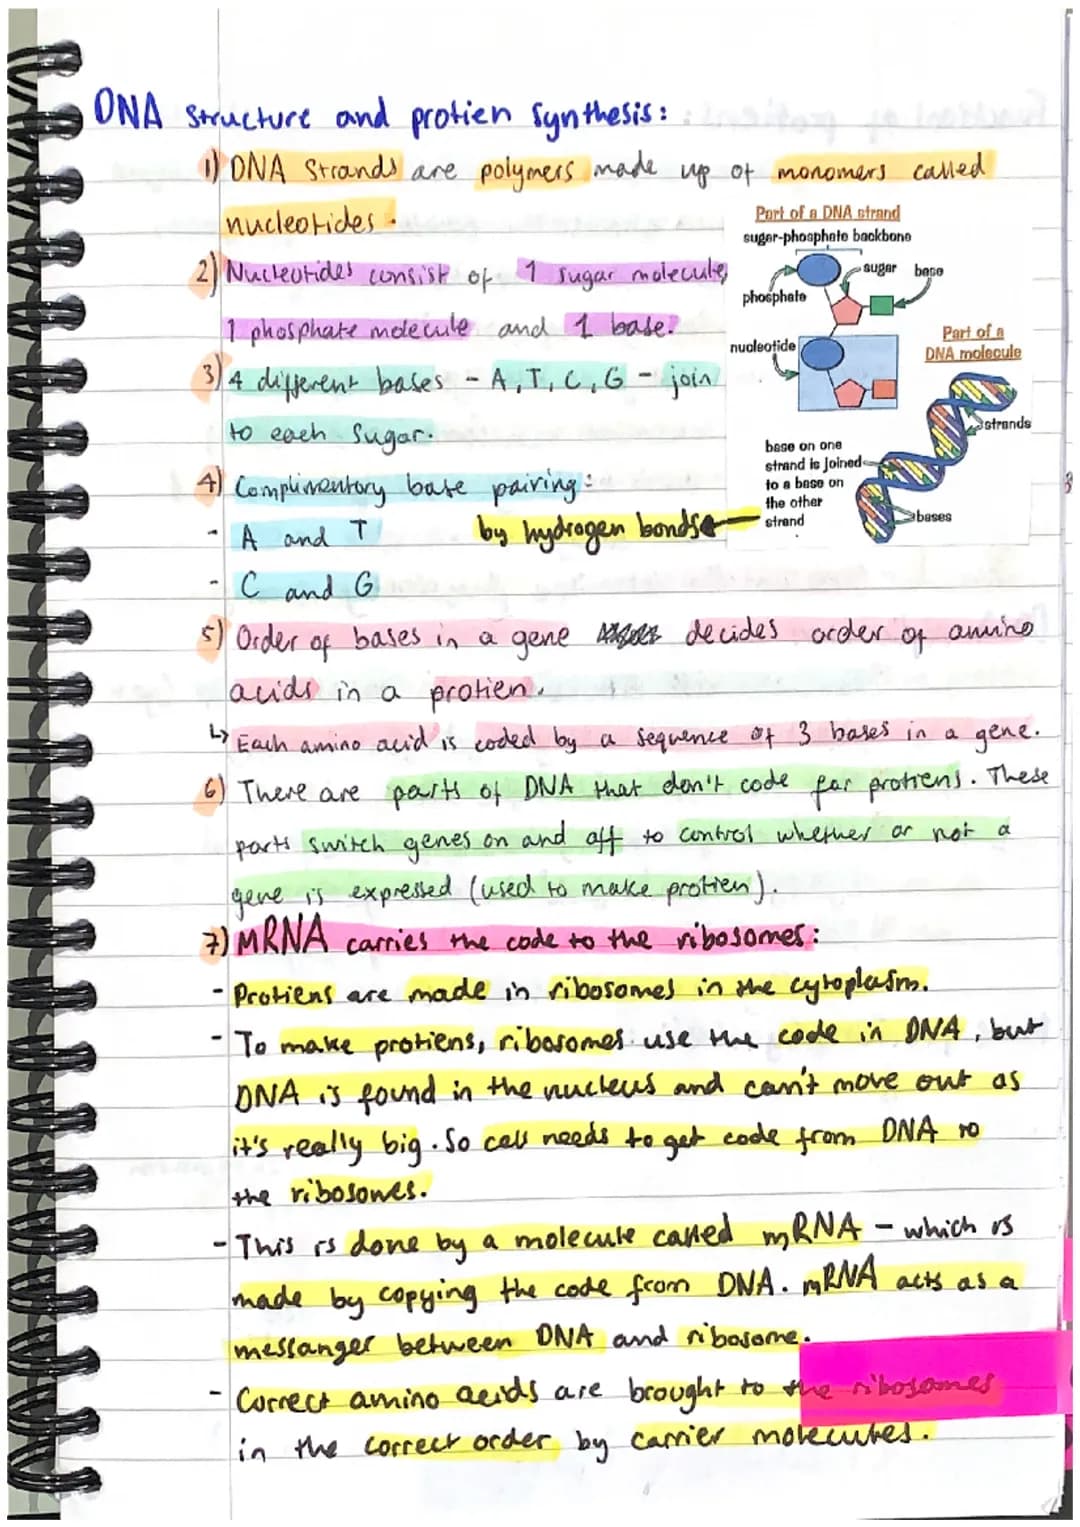 DNA structure and protien synthesis:
1) DNA strands are polymers made up of monomers called
nucleotides.
Part of a DNA strand
sugar-phosphate backbone
sugar
base
phosphate
nucleotide
Part of a
DNA molecule
strands
base on one
strand is joined
to a base on
the other
strand
bases
2) Nucleotides consist of 1 sugar molecule,
1 phosphate molecule and 1 base.
3) 4 different bases - A, T, C, G - join
to each sugar.
4) Complimentary base pairing:
- A and T
by hydrogen bonds
- C and G
5) Order of bases in a gene decides order of amino
acids in a protien.
↳ Each amino acid is coded by a sequence of 3 bases in a gene.
6) There are parts of DNA that don't code for protiens. These
parts switch genes on and off to control whether or not a
gene is expressed (used to make protien).
7) MRNA carries the code to the ribosomes:
- Protiens are made in ribosomes in the cytoplasm.
- To make protiens, ribosomes use the code in DNA, but
DNA is found in the nucleus and can't move out as
it's really big. So cell needs to get code from DNA to
the ribosomes.
- This is done by a molecule called mRNA - which is
made by copying the code from DNA. mRNA acts as a
messanger between DNA and ribosome.
- Correct amino acids are brought to the ribosomes
in the correct order by carrier molecules.